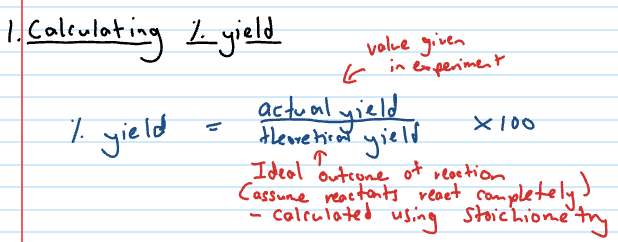 1. Calculating % yield
value given
in experiment
% yield = actual yield / theoretical yield × 100
Ideal outcome of reaction
(assume reactants react completely)
- calculated using stoichiometry